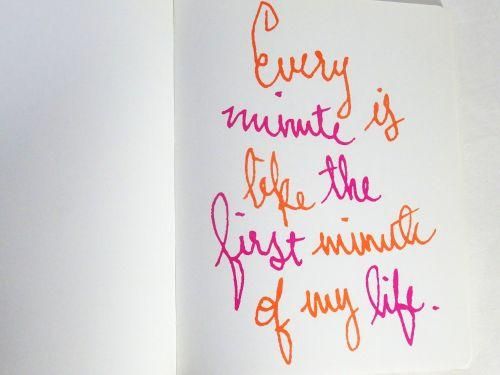 Every
minute is
like the
first minute
of my life.